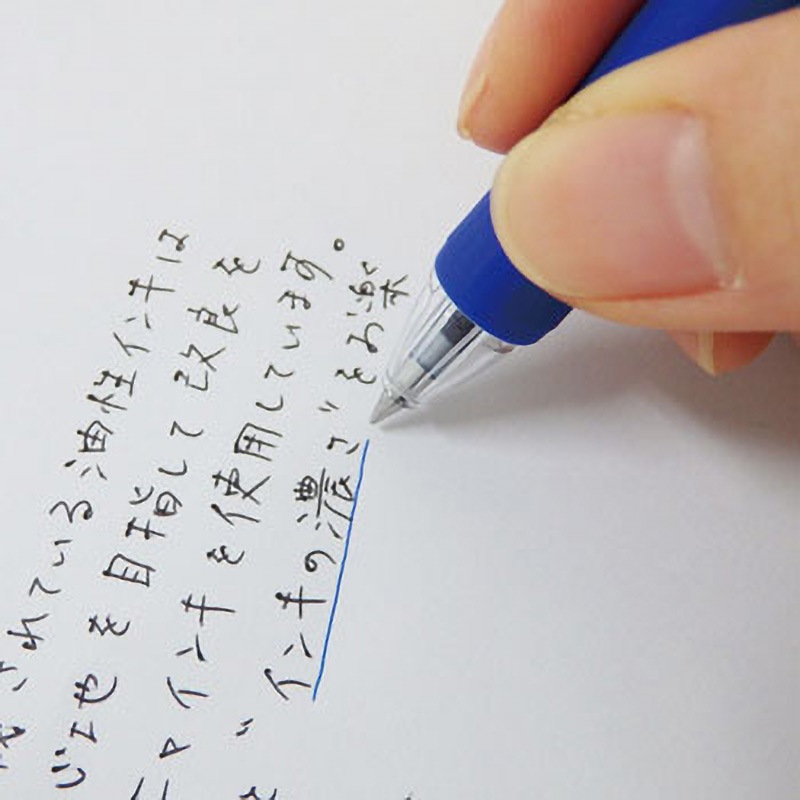 されている油性インキは
び土やを目指して改良を
ニヤインキを使用しています。
"インキの濃さ"をお楽